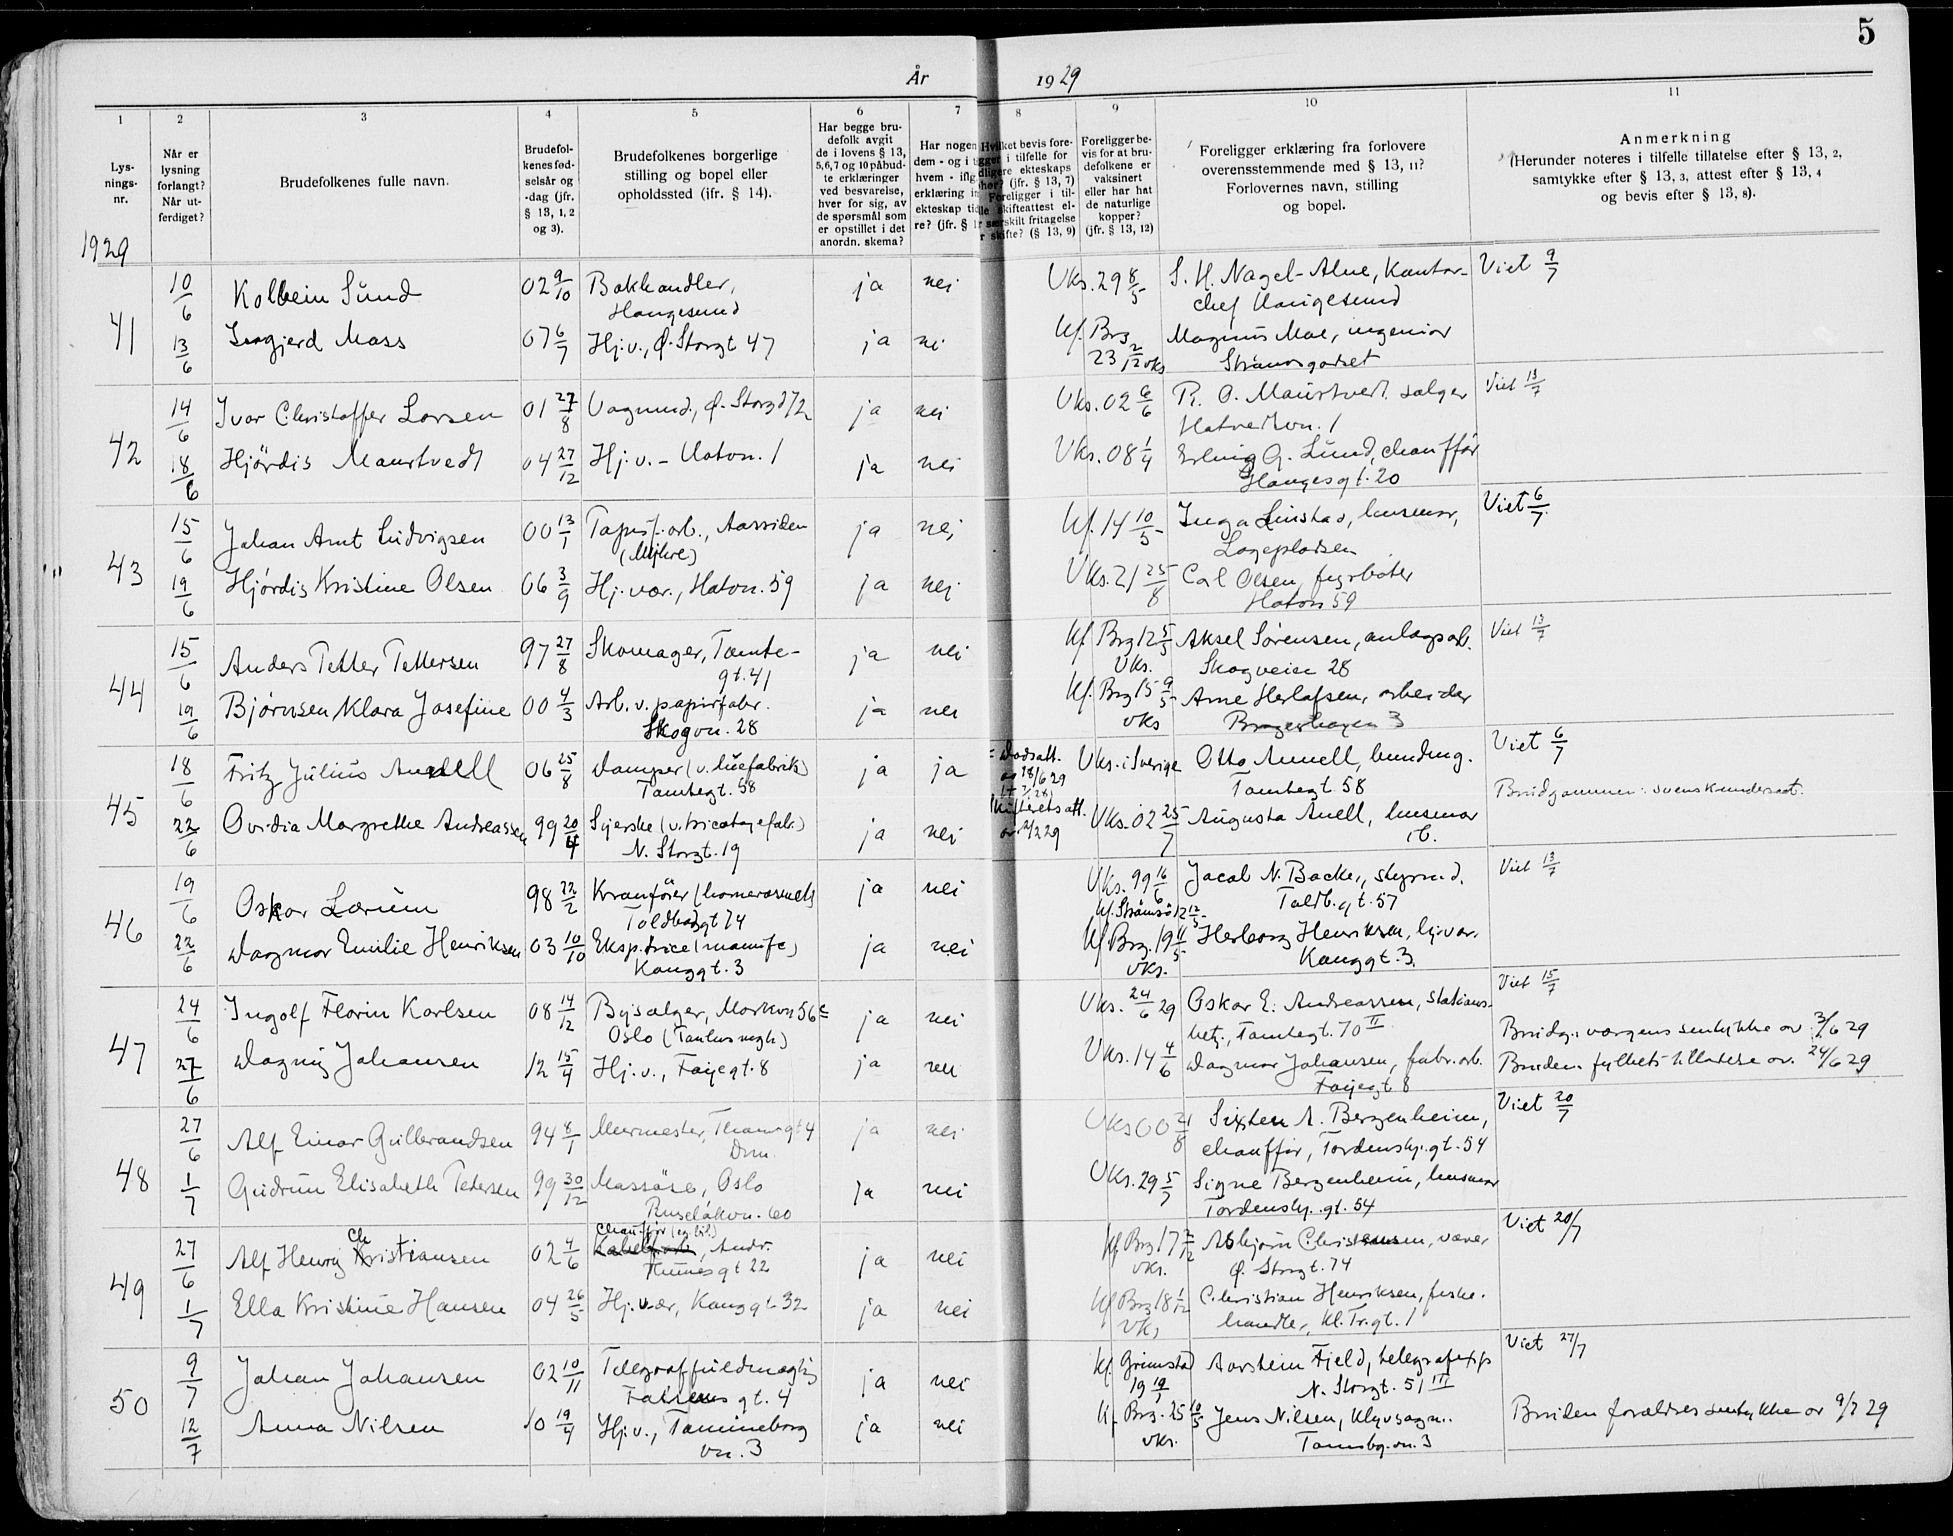 5
År 1929
1 2 3 4 5 6 7 8 9 10 11
Lys-
nings-
nr.
Når er
lysning
forlangt?
Når ut-
ferdiget?
Brudefolkenes fulle navn.
Brudefol-
kenes fød-
selsår og
-dag (jfr.
§ 13, 1, 2
og 3).
Brudefolkenes borgerlige
stilling og bopel eller
opholdssted (jfr. § 14).
Har begge bru-
defolk avgit
de i lovens § 13,
5,6,7 og 10 påbud-
te erklæringer
ved besvarelse,
hver for sig, av
de spørsmål som
er opstillet i det
anordn. skema?
Har nogen
dem - og i
hvem - ifl.
erklæring
ekteskap
re? (jfr. §
Hvilket bevis fore-
i tilfelle for
ekteskaps
(jfr. § 13, 7)
Foreligger i til-
skifteattest el-
særskilt fritagelse
skifte? (§ 13, 9)
Foreligger be-
vis for at bru-
defolkene er
vaksinert
eller har hat
de naturlige
kopper?
(jfr. § 13, 12)
Foreligger erklæring fra forlovere
overensstemmende med § 13, 11?
Forlovernes navn, stilling
og bopel.
Anmerkning
(Herunder noteres i tilfelle tillatelse efter § 13, 2,
samtykke efter § 13, 3, attest efter § 13, 4
og bevis efter § 13, 8).
1929
41
10/6 Kolbein Sund 02 9/10 Bokhandler, ja nei Vks. 29 8/5 S. H. Nagel-Alne, kontor- Viet 9/7
Haugesund chef Haugesund
13/6 Ingjerd Mass 07 6/7 Hj.v., Ø. Storgt 47 ja nei Kf. Brg Magnus Moe, ingeniør
23 2/12 vks Strømsgodset
42
14/6 Ivar Christoffer Larsen 01 27/8 Vognmd., Ø. Storgt 72 ja nei Vks. 02 6/6 R. O. Maurtvedt, sælger Viet 13/7
Hatvedtvn. 1
18/6 Hjördis Maurtvedt 04 27/12 Hj.v. - Hatvn. 1 ja nei Vks. 08 1/4 Erling G. Lund, chauffør
Haugesgt. 20
43
15/6 Johan Arnt Ludvigsen 00 13/1 Aassiden ja nei Kf. 14 10/5 Inga Linstad, husmor, Viet 6/7
Lageplassen
19/6 Hjördis Kristine Olsen 06 3/9 Hj.vær., Hatvn. 59 ja nei Vks. 21 25/8 Carl Olsen, fyrbøter
Hatvn 59
44
15/6 Anders Petter Pettersen 97 27/8 Skomager, Tomte- ja nei Kf Brg 12 5/5 Aksel Sørensen, anlægsarb. Viet 13/7
gt. 41 Vks. Skogveien 28
19/6 Bjørnsen Klara Josefine 00 4/3 Arb. v. papirfabr. ja nei Kf. Brg 15 9/5 Arne Herlofsen, arbeider
Skogvn. 28 vks Bragerhagen 3
45
18/6 Fritz Julius Anell 06 25/8 Damper (v. huefabrik) ja ja Dødsatt. Vks. i Sverige Otto Annell, bundtmg. Viet 6/7
Tomtegt. 58 av 18/6 29 Tomtegt 58
Brudgommen: svensk undersaat.
22/6 Ovidia Margrethe Andreassen 99 20/4 Syerske (v. tricotagefabr.) ja nei Skifteretsatt. Vks. 02 25/7 Augusta Anell, husmor
N. Storgt. 19 ib.
46
19/6 Oskar Lærum 98 22/2 Kranfører ja nei Vks. 99 16/6 Jacob N. Backer, styrm.d. Viet 13/7
Toldbodgt 74 Kf. Strømsö 12 12/5 Toldb.gt. 57
22/6 Dagmar Emilie Henriksen 03 10/10 Eksp.trice (manufc) ja nei Kf Brg. 19 11/5 Herborg Henriksen, hj.vær.
Konggt. 3 vks. Konggt. 3.
47
24/6 Ingolf Florin Karlsen 08 14/12 Bysælger, Markvn 56 c ja nei Vks. 24/6 29 Oskar E. Andreassen, stations- Viet 15/7
Oslo betj., Tomtegt. 70 II Brudg.s værgens samtykke av 3/6 29
27/6 Dagny Johansen 12 15/4 Hj.v., Fayegt. 8 ja nei Vks. 14 4/6 Dagmar Johansen, fabr.arb. Bruden. fylkets tillatelse av. 24/6 29
Fayegt 8
48
27/6 Alf Einar Gulbrandsen 94 8/1 Murmester, Thamsgt 4 ja nei Vks 00 21/8 Sixten A. Bergenheim, Viet 20/7
Drm. chauffør, Tordenskj.gt. 54
1/7 Gudrun Elisabeth Petersen 99 30/12 Massøse, Oslo ja nei Vks. 29 5/7 Signe Bergenheim, husmor
Ruseløkvn. 60 Tordenskj. gt. 54
49
27/6 Alf Henry Christiansen 02 4/6 Chauffør (eg bil) ja nei Kf Brg 17 2/12 Asbjørn Christensen, væver Viet 20/7
Andr. Thunesgt 22 vks. Ø. Storgt. 74
1/7 Ella Kristine Hansen 04 26/5 Hj.vær, Konggt. 32 ja nei Kf Brg 18 1/12 Christian Henriksen, fiske-
Vks handler, Kl. Tr.gt. 1
50
9/7 Johan Johansen 02 10/11 Telegraffuldmægtig ja nei Kf. Grimstad Aarstein Fjeld, telegrafexp Viet 27/7
gt. 4 19 19/1 N. Storgt. 51 III
12/7 Anna Nilsen 10 19/4 Hj.v., Tamineborg ja nei Kf Brg. 25 10/5 Jens Nilsen, Bruden forældres samtykke av 9/7 29
vn. 3 vks. Tamsbg.vn. 3